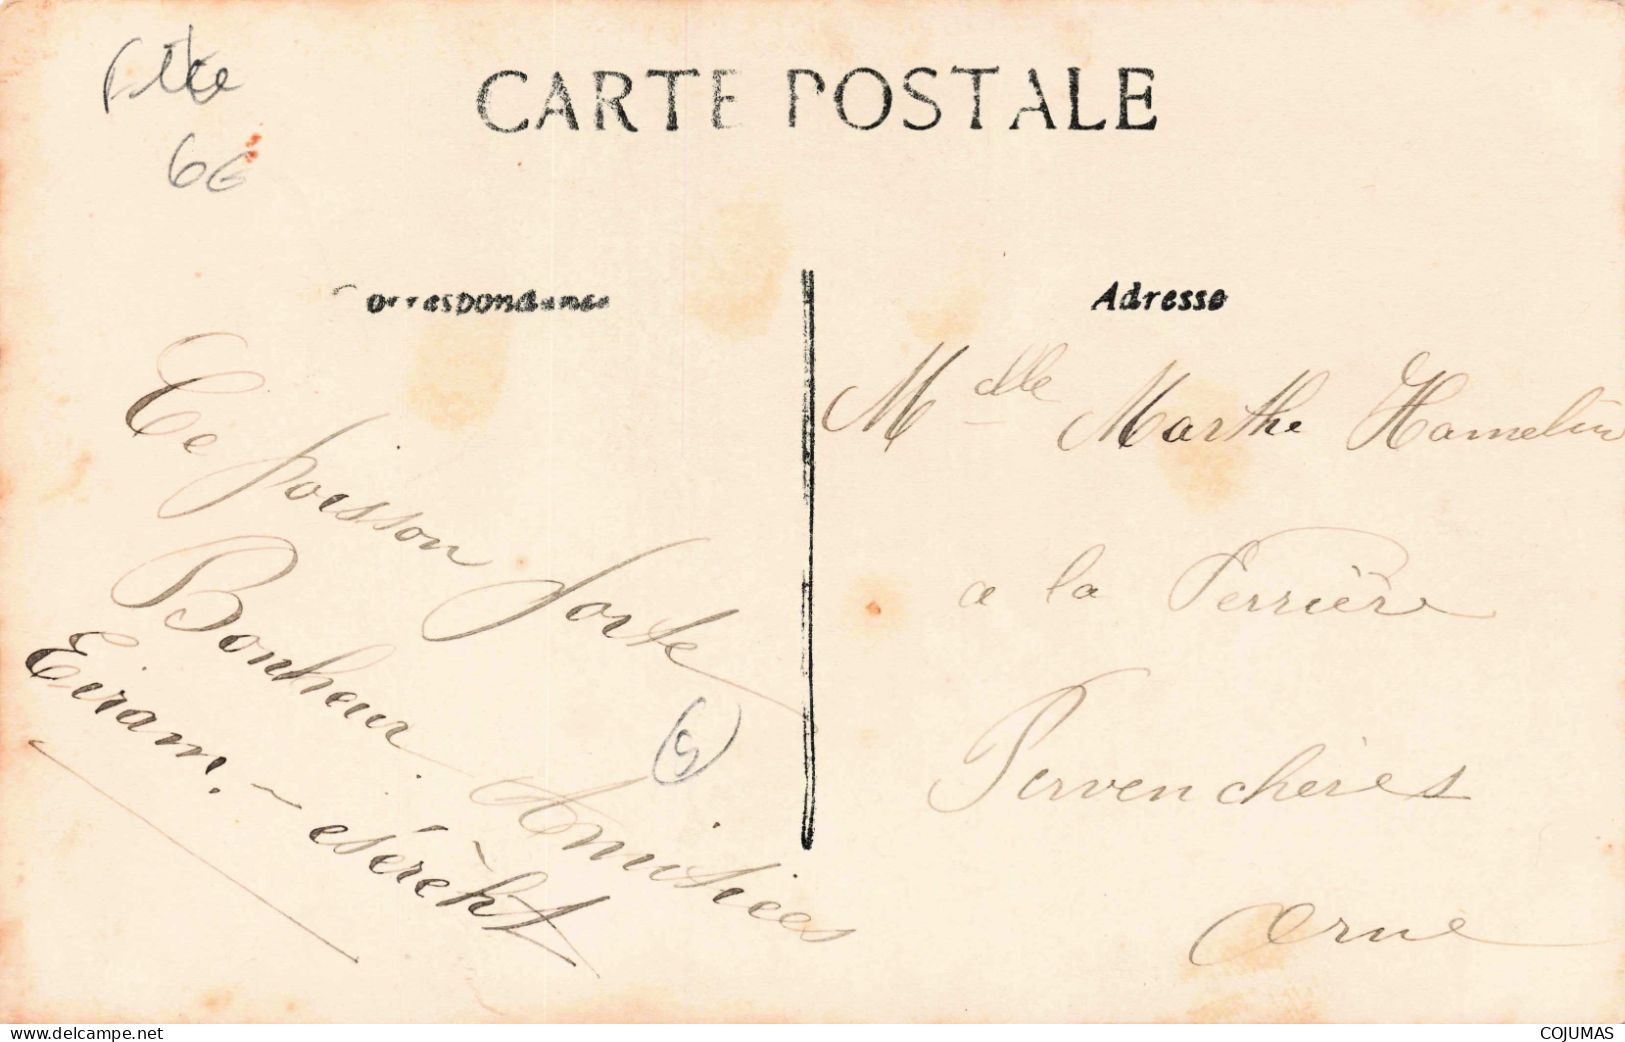 Fête
6€
CARTE POSTALE
Correspondance
Adresse
Ce poisson porte
Bonheur Amitiées
Eiram. - esérèhT
5
Mdlle Marthe Hamelin
a la Perrière
Pervenchères
Orne
www.delcampe.net
COJUMAS